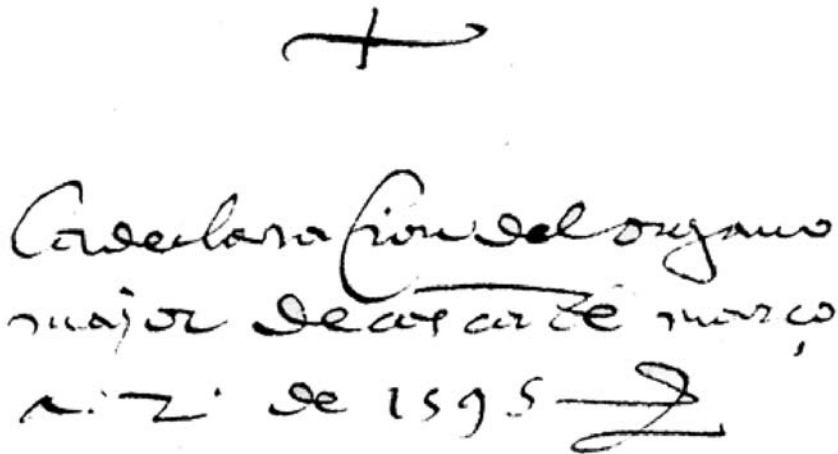 La declaracion del organo
major de março
a .2. de 1595